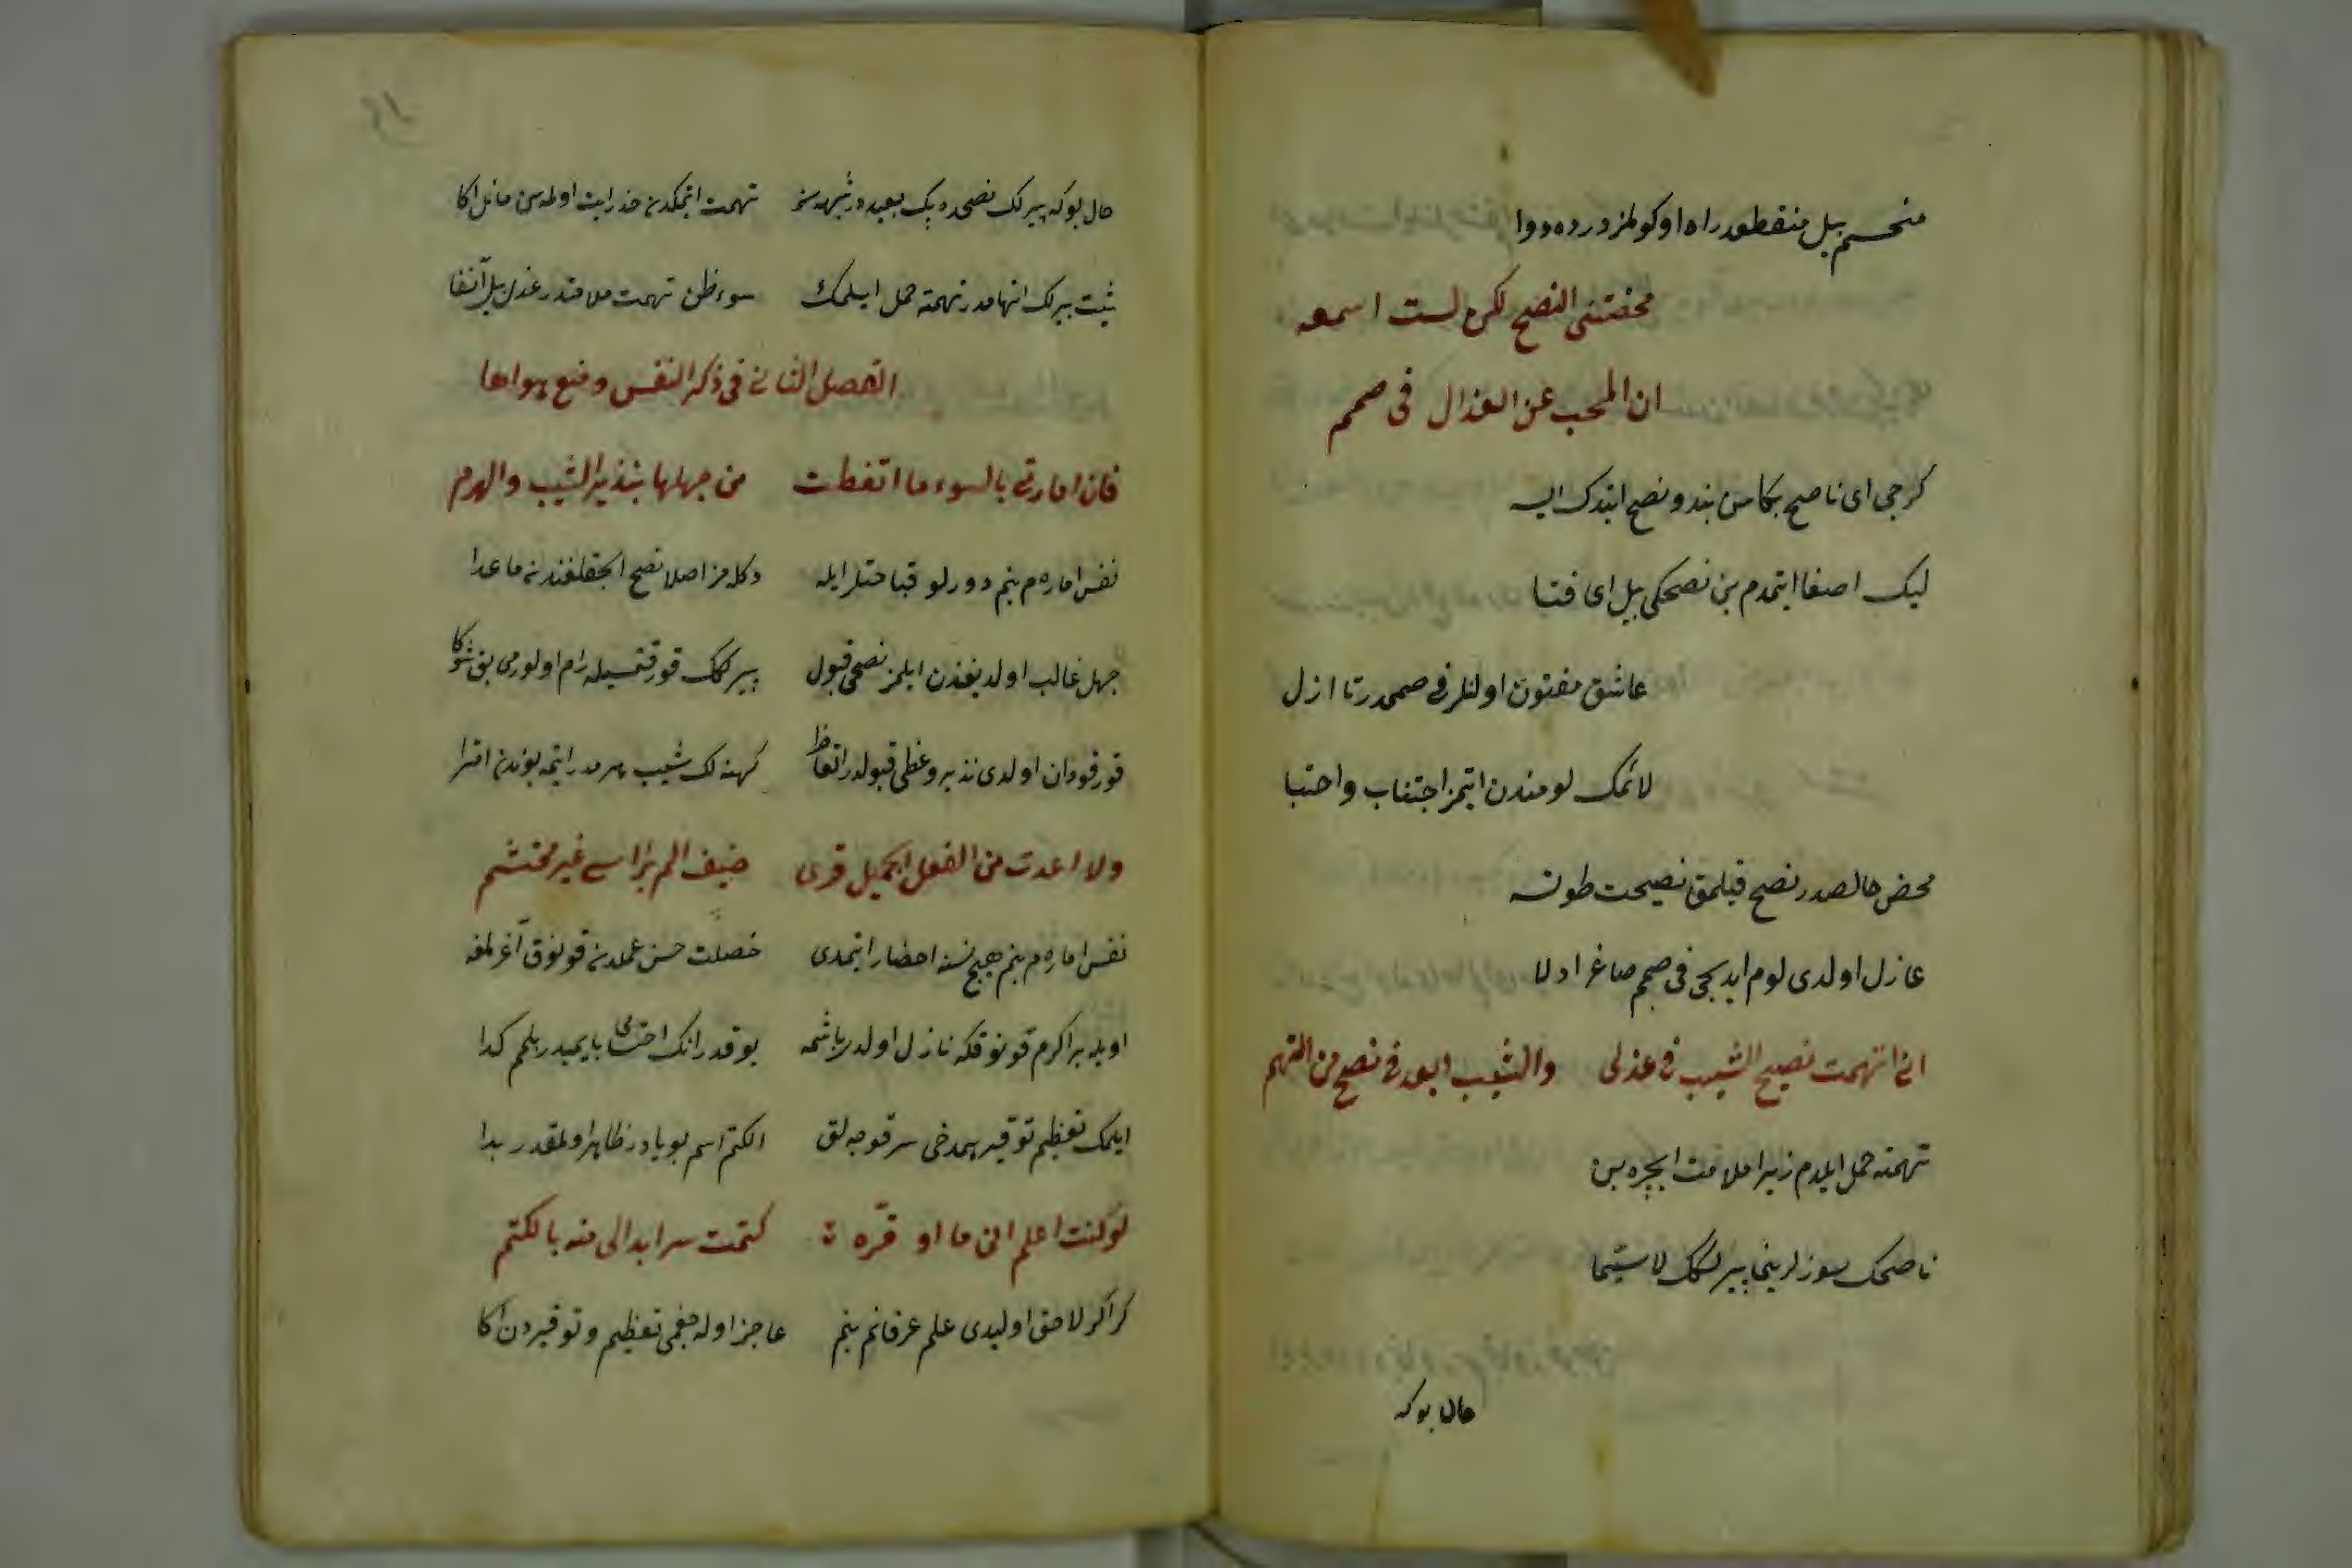 منحسم بيل منقطعدر راه او كولمز درده دوا
محضتنى النصح لكن لست اسمعه
ان المحب عن العذال فى صمم
كرچى اى ناصح بكا سن پند و نصح ايتدك ايسه
ليك اصغا ايتمدم بن نصحكى بيل اى فتا
عاشق مفتون اولنلر فى صممدر تا ازل
لائمك لومندن ايتمز اجتناب واحتبا
محض خالصدر نصح قيلمق نصيحت طوته
عازل اولدى لوم ايديجى فى صمم صاغر اولا
انى اتهمت نصيح الشيب فى عذلى والشيب ابعد فى نصح من التهم
تهمته حمل ايلدم زيرا ملامت ايچره بن
ناصحك سوزلرينى پيرلكك لا سيما
حال بوكه
حال بوكه پيرلك نصحده پك بعيددر شبهه سز تهمت اتمكدن حذر ايت اولمه سن مائل اكا
شيت پيرلك اتهامدر تهمته حمل ايلمك سوء ظن تهمت ملامتدر عذل بيل آنفا
الفصل الثانى فى ذكر النفس ومنع هواها
فان امارتى بالسوء ما اتعظت من جهلها بنذير الشيب والهرم
نفس اماره م بنم دورلو قباحتلر ايله دكله مز اصلا نصح
جهل غالب اولديغندن ايلمز نصحى قبول پيرلكك قورقتمسيله رام اولورمى بق شوكا
قورقودان اولدى نذير وعظى قبولدر اتعاظ كهنه لك شيب هرمدر ايتمه بوندن افترا
ولا اعدت من الفعل الجميل قرى ضيف الم براسى غير محتشم
نفس اماره م بنم هيچ نسنه احضار ايتمدى خصلت حسن عملدن قونوق آغرلمغه
اويله بر اكرم قونوقكه نازل اولدر باشمه يوقدر انك احتشامى بايميدر بلمم كدا
ايلمك تعظيم توقير همدخى سر قوجه لق الكتم اسم بويادر ظاهر اولمقدر بدا
لو كنت اعلم انى ما اوقره كتمت سرا بدا لى منه بالكتم
كر اكر لاحق اوليدى علم عرفانم بنم عاجز اوله جغمى تعظيم وتوقيردن اكا